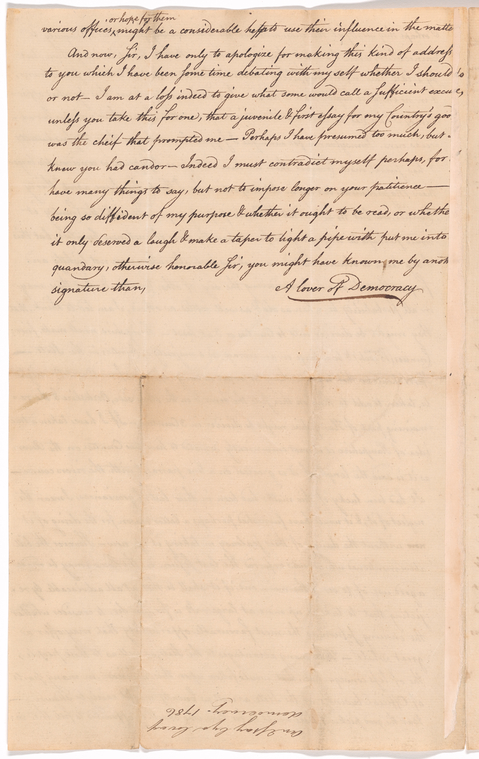 or hope for them
various offices, might be a considerable help to use their influence in the matte
And now, Sir, I have only to apologize for making this kind of address
to you which I have been some time debating with myself whether I should
or not — I am at a loss indeed to give what some would call a sufficient excuse,
unless you take this for one, that a juvenile & first essay for my Country's goo
was the cheif that prompted me — Perhaps I have presumed too much, but
knew you had candor — Indeed I must contradict myself perhaps, for
have many things to say; but not to impose longer on your patience —
being so diffident of my purpose & whether it ought to be read, or whethe
it only deserved a laugh & make a taper to light a pipe with put me into
quandary; otherwise honorable Sir, you might have known me by anoth
signature than,
A lover of Democracy
an Essay by a lover of
democracy. 1786